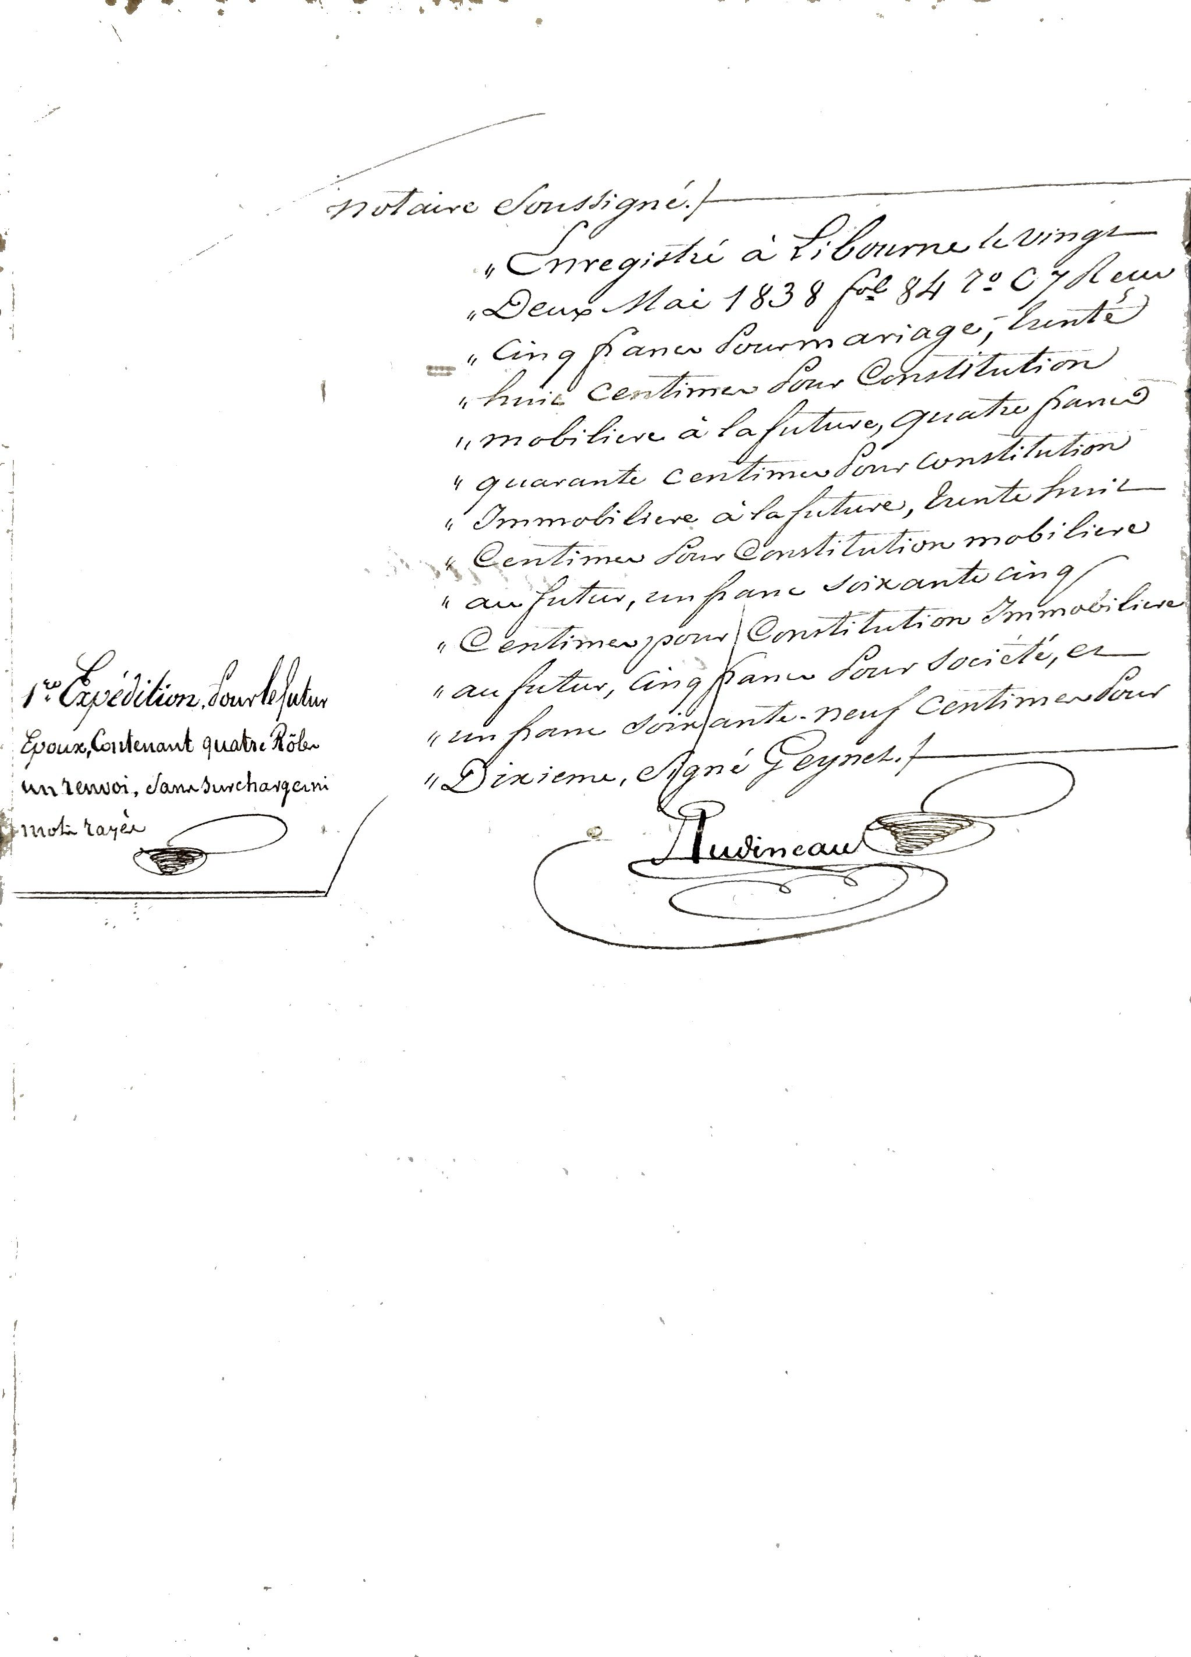 notaire soussigné./
"Enregistré à Libourne le vingt
"Deux Mai 1838 fol 84 ro C 7 Reçu
"Cinq francs Pour mariage, trente
"huit centimes Pour Constitution
"mobiliere à la future, quatre francs
"quarante centimes Pour constitution
"Immobiliere à la future, trente huit
"Centimes Pour Constitution mobiliere
"au futur, un franc soixante cinq
"Centimes pour Constitution Immobiliere
"au futur, cinq francs Pour société, et
"un franc soixante-neuf Centimes Pour
"Dixieme, signé Geynet./
Audineau
1re Expédition, Pour le futur
Epoux, Contenant quatre Rôles
un renvoi, sans surcharge ni
mots rayés